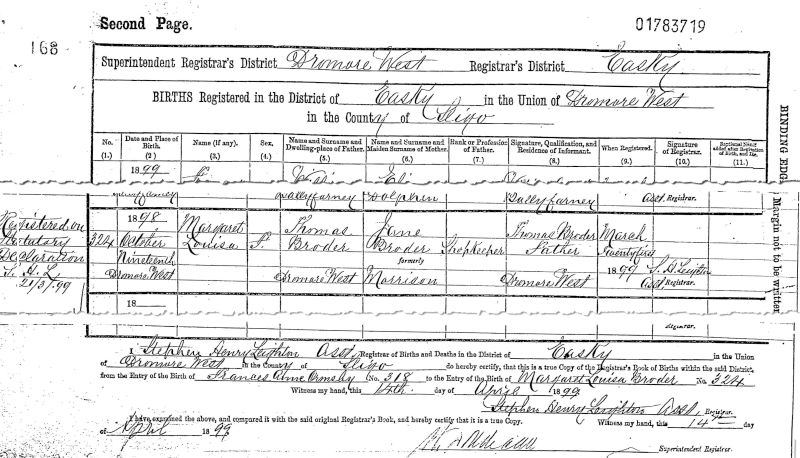 Second Page.
01783719
168
Superintendent Registrar's District Dromore West Registrar's District Easky
BIRTHS Registered in the District of Easky in the Union of Dromore West
in the County of Sligo
No. Date and Place of Birth. Name (if any). Sex. Name and Surname and Dwelling-place of Father. Name and Surname and Maiden Surname of Mother. Rank or Profession of Father. Signature, Qualification, and Residence of Informant. When Registered. Signature of Registrar. Baptismal Name if added after Registration of Birth, and Date.
(1.) (2.) (3.) (4.) (5.) (6.) (7.) (8.) (9.) (10.) (11.)
1899
Ballyfarney Dolphin Ballyfarney Asst Registrar.
Registered on Statutory Declaration S. H. L. 21/3/99
324 1898 October Nineteenth Dromore West
Margaret Louisa
F
Thomas Broder Dromore West
Jane Broder formerly Morrison
Shopkeeper
Thomas Broder Father Dromore West
March Twentyfirst 1899
S. H. Leighton Asst Registrar.
18
Registrar.
BINDING EDGE
Margin not to be written
I Stephen Henry Leighton Asst. Registrar of Births and Deaths in the District of Easky in the Union
of Dromore West in the County of Sligo do hereby certify, that this is a true Copy of the Registrar's Book of Births within the said District,
from the Entry of the Birth of Frances Anne Ormsby No. 318 to the Entry of the Birth of Margaret Louisa Broder No. 324
Witness my hand, this 14th day of April 1899.
Stephen Henry Leighton Asst. Registrar.
I have examined the above, and compared it with the said original Registrar's Book, and hereby certify that it is a true Copy. Witness my hand, this 14th day
of April 1899
Superintendent Registrar.